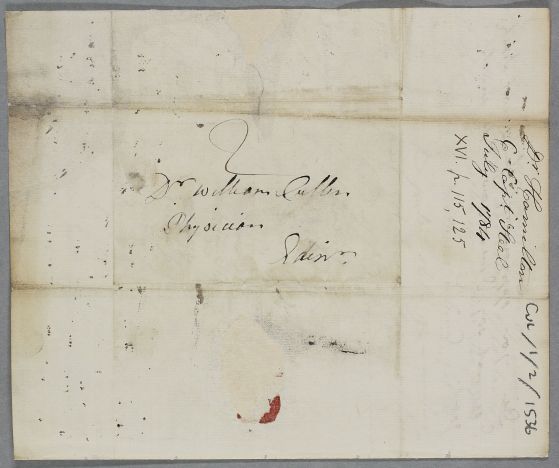 2
Dr William Cullen
Physician
Edinr.
Dr Hamilton
C. Capt Steel
July 1784
XVI. p. 115, 125
Cul/1/2/1536